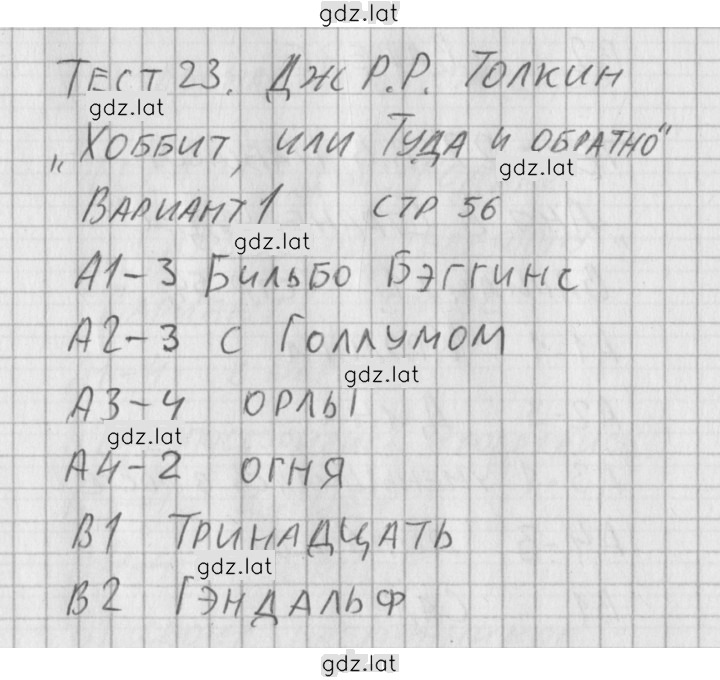 gdz.lat
Тест 23. Дж Р.Р. Толкин
gdz.lat
„Хоббит, или Туда и обратно“
gdz.lat
Вариант 1 стр 56
gdz.lat
А1-3 Бильбо Бэггинс
А2-3 с Голлумом
gdz.lat
А3-4 орлы
gdz.lat
А4-2 огня
В1 Тринадцать
gdz.lat
В2 Гэндальф
gdz.lat